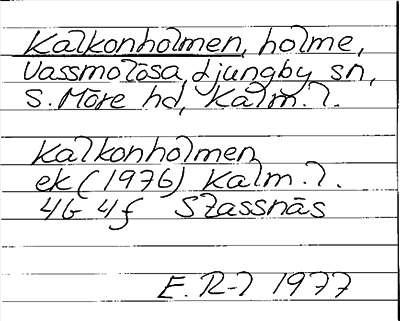 Kalkonholmen, holme,
Vassmolösa, Ljungby sn,
S. Möre hd, Kalm. l.
Kalkonholmen
ek (1976) Kalm. l.
4G 4f Stassnäs
E. R-l 1977